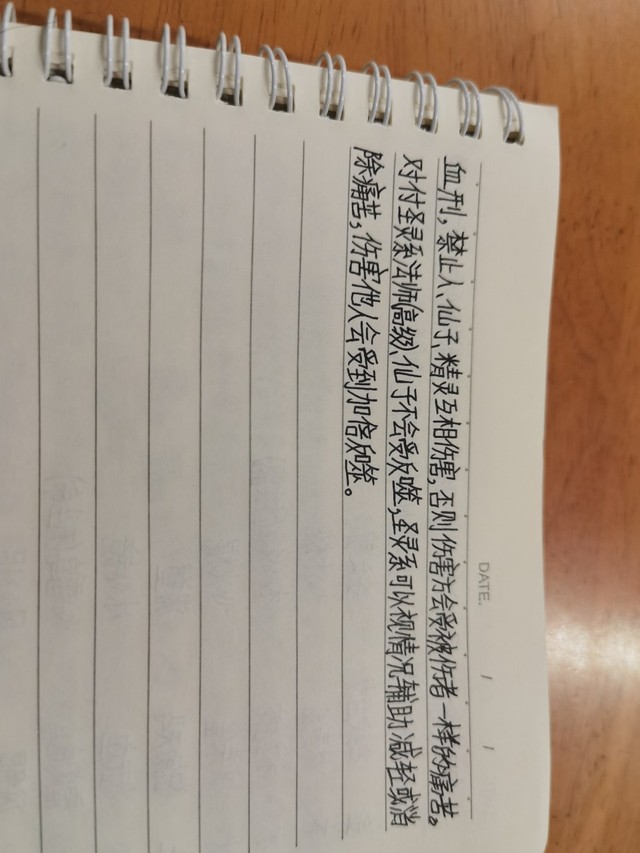 DATE. / /
血刑，禁止人、仙子、精灵互相伤害，否则伤害方会受被伤者一样的痛苦。
对付圣灵系法师(高级)、仙子不会受反噬，圣灵系可以视情况辅助减轻或消
除痛苦，伤害他人会受到加倍反噬。